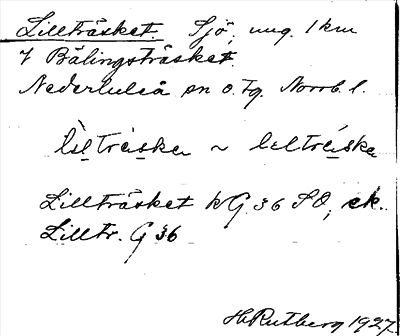 Lillträsket Sjö, ung. 1 km
Bälingsträsket
Nederluleå sn o. tg. Norrb. l.
~
Lillträsket kG 36 SO, ek.
Lilltr. G 36
H. Rutberg 1927.